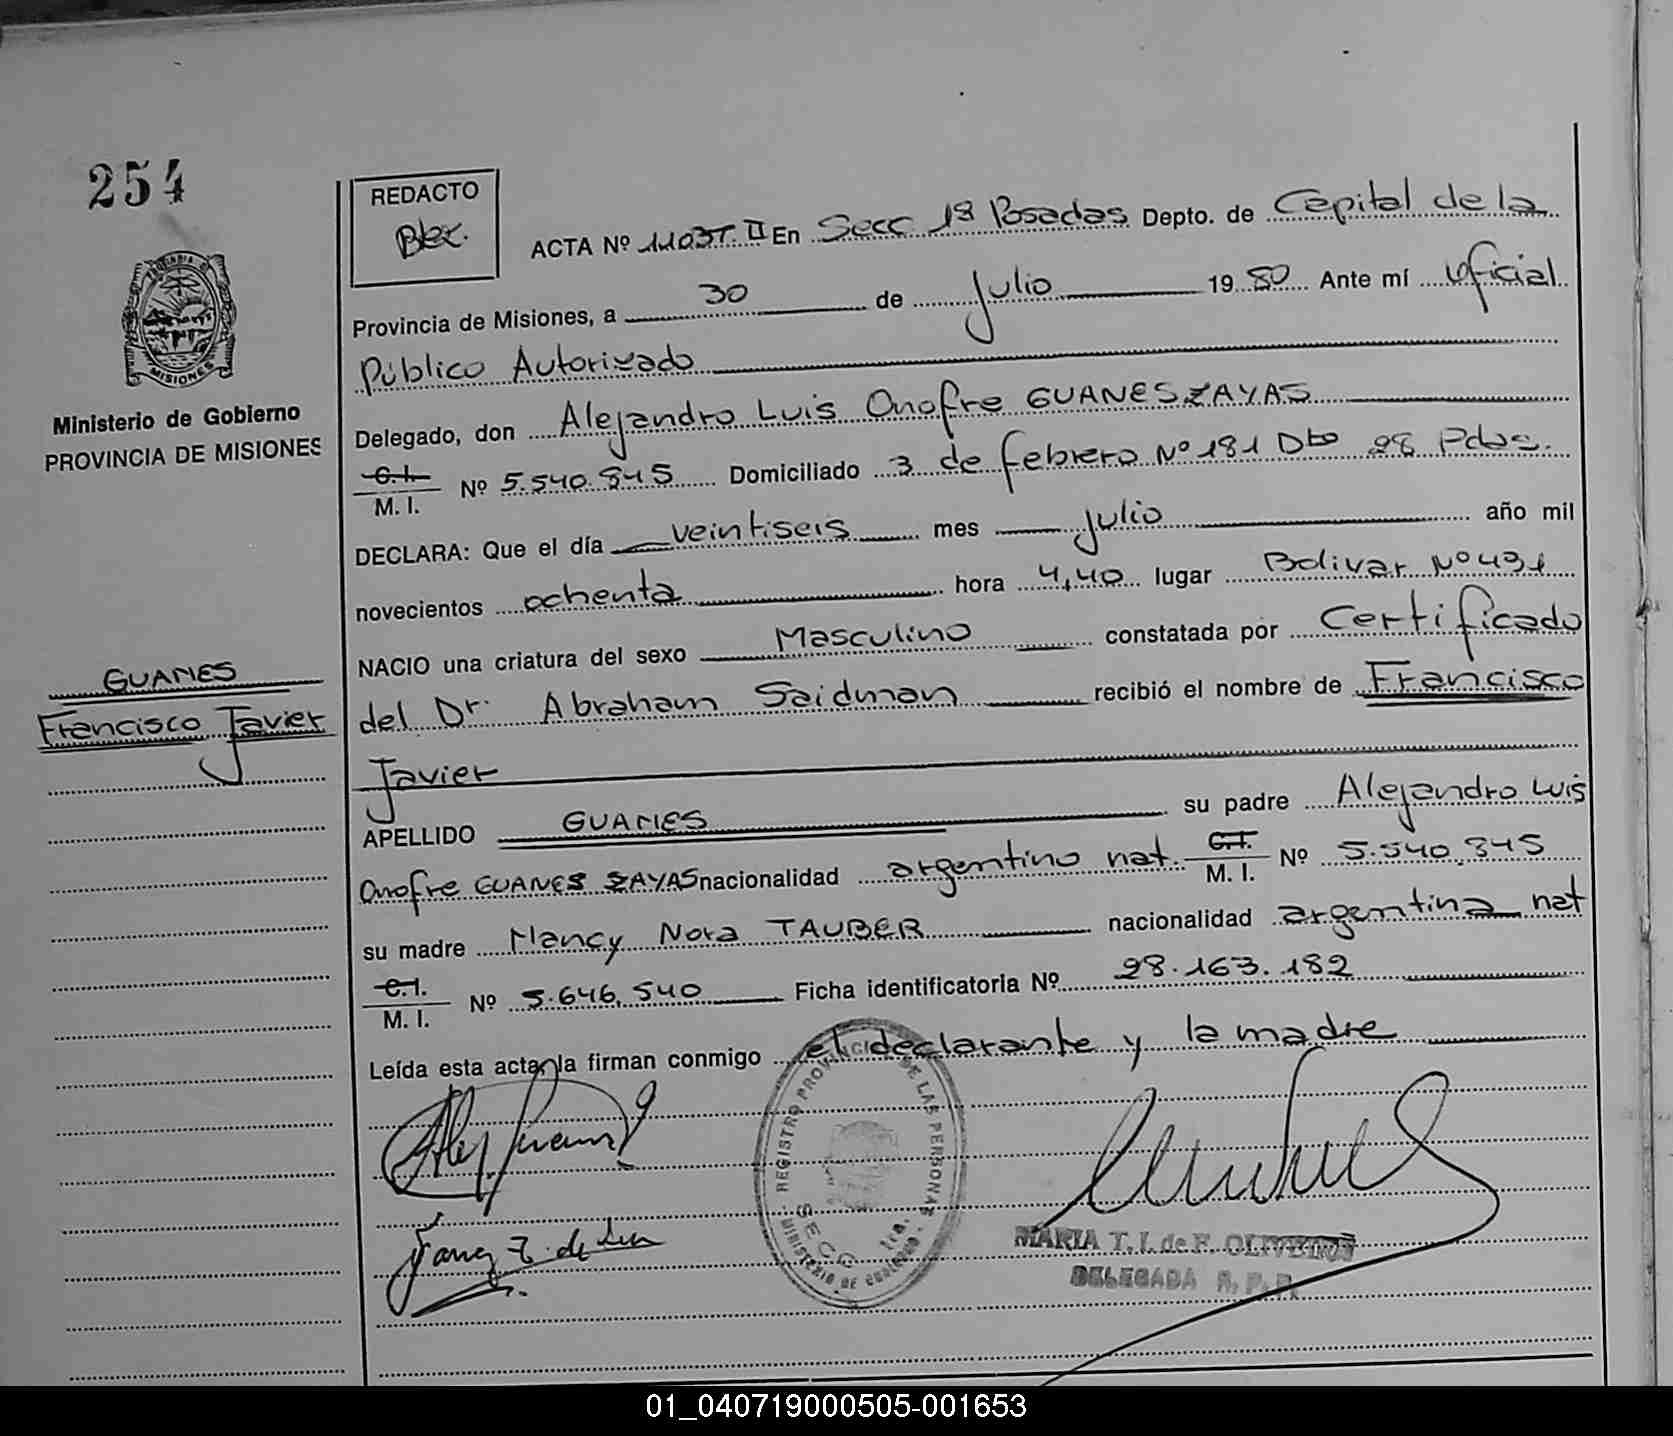 254
REDACTO
ACTA Nº 1103T. II En Secc 1ª Posadas Depto. de Capital de la
Provincia de Misiones, a 30 de Julio 19 80 Ante mí Oficial
Público Autorizado
Delegado, don Alejandro Luis Onofre GUANES ZAYAS
C.I.
M. I. Nº 5.540.345 Domiciliado 3 de febrero Nº 181 Dto 28 Pdas.
DECLARA: Que el día veintiseis mes Julio año mil
novecientos ochenta hora 4,40 lugar Bolivar Nº 431
NACIO una criatura del sexo Masculino constatada por Certificado
del Dr. Abraham Saidman recibió el nombre de Francisco
Javier
APELLIDO GUANES su padre Alejandro Luis
Onofre GUANES ZAYAS nacionalidad argentino nat. C.I. M. I. Nº 5.540.345
su madre Nancy Nora TAUBER nacionalidad argentina nat
C.I.
M. I. Nº 5.646.540 Ficha identificatoria Nº 28.163.182
Leída esta acta la firman conmigo el declarante y la madre
Ministerio de Gobierno
PROVINCIA DE MISIONES
MISIONES
GUANES
Francisco Javier
REGISTRO PROVINCIAL DE LAS PERSONAS
MINISTERIO DE GOBIERNO
SECC 1ra.
MARIA T. I. de F. OLIVEIRA
DELEGADA R. P. P.
01_040719000505-001653